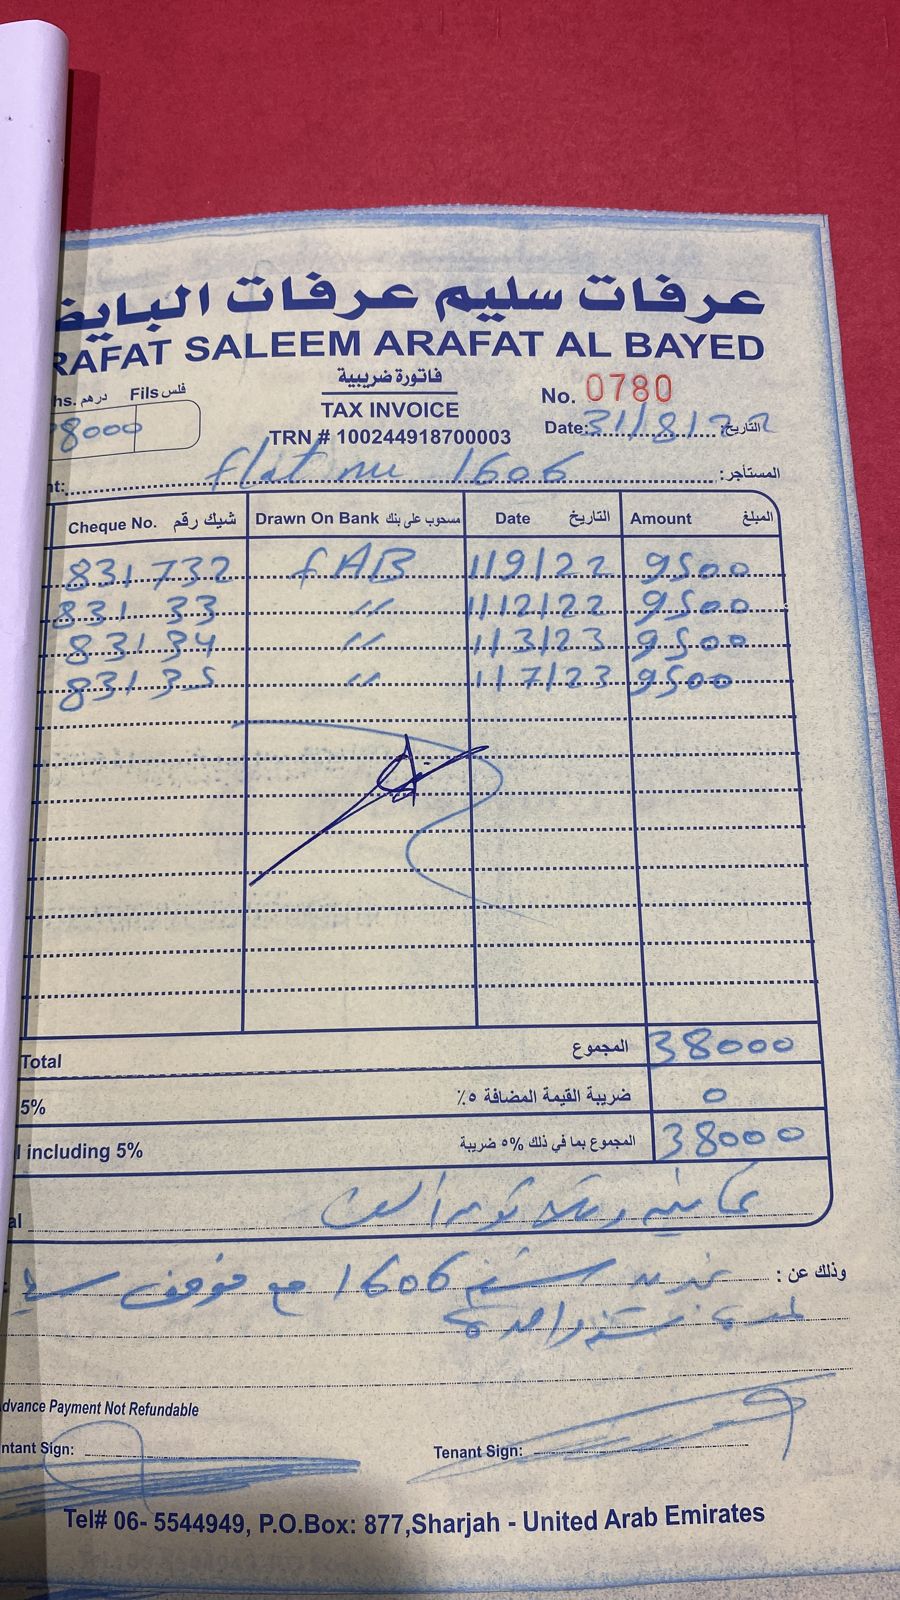 عرفات سليم عرفات البايض
RAFAT SALEEM ARAFAT AL BAYED
hs. درهم Fils فلس
فاتورة ضريبية
No. 0780
TAX INVOICE
8000
Date: 31/8/22 التاريخ:
TRN # 100244918700003
nt: flat nu 1606 المستأجر:
Cheque No. شيك رقم Drawn On Bank مسحوب على بنك Date التاريخ Amount المبلغ
831732 FAB 1/9/22 9500
831 33 " 1/12/22 9500
831 34 " 1/3/23 9500
831 35 " 1/7/23 9500
Total المجموع 38000
5% ضريبة القيمة المضافة ٥٪ 0
l including 5% المجموع بما في ذلك ٥% ضريبة 38000
al ثمانية وثلاثون الف
وذلك عن: تجديد شقة 1606 مع موقف
لمدة سنة واحدة
dvance Payment Not Refundable
ntant Sign: Tenant Sign:
Tel# 06- 5544949, P.O.Box: 877,Sharjah - United Arab Emirates